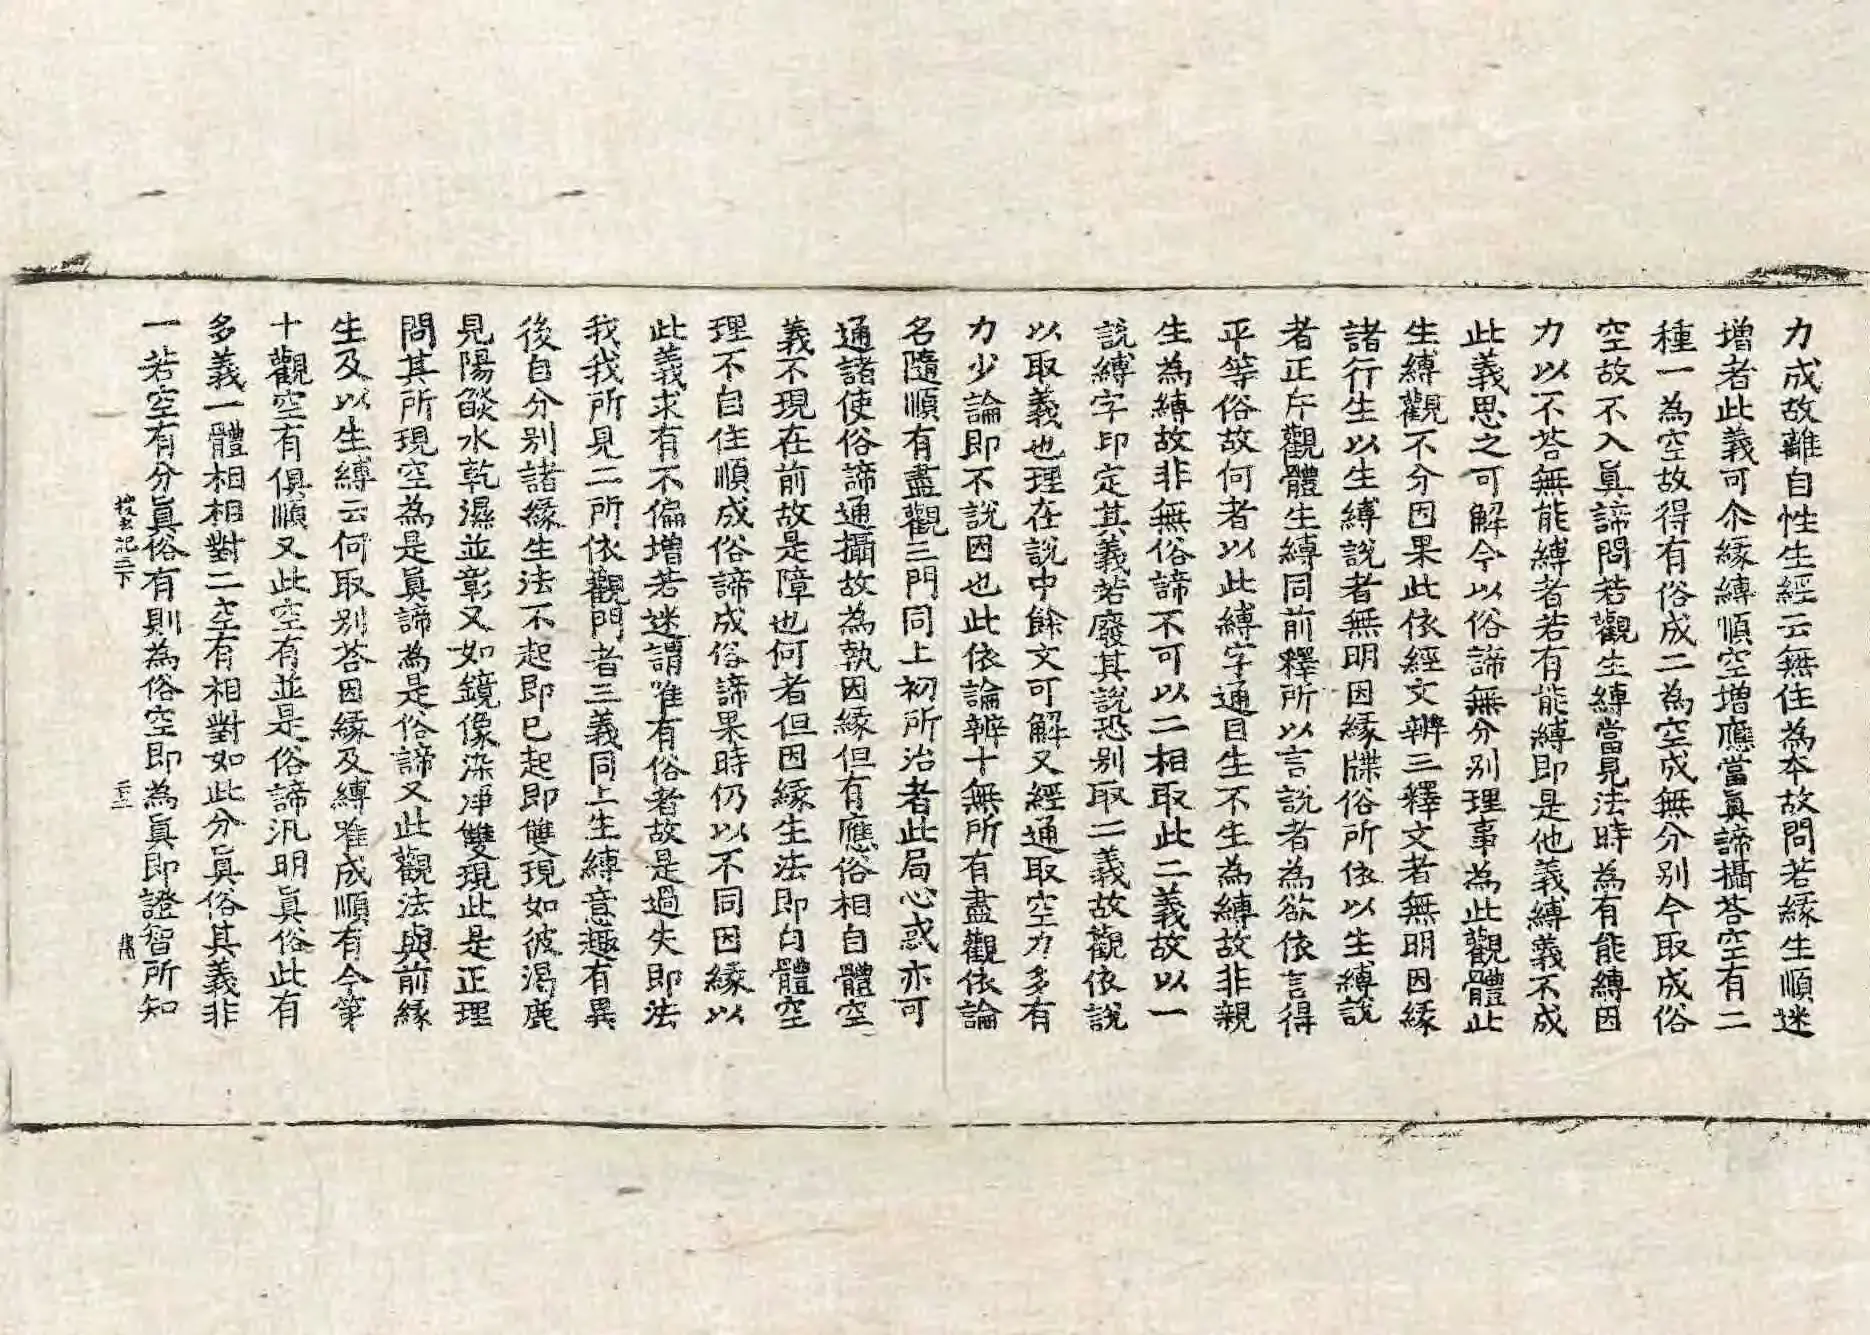 力成故離自性生經云無住為本故問若緣生順迷
增者此義可尒緣縛順空增應當眞諦攝荅空有二
種一為空故得有俗成二為空成無分別今取成俗
空故不入眞諦問若觀生縛當見法時為有能縛因
力以不荅無能縛者若有能縛即是他義縛義不成
此義思之可解今以俗諦無分別理事為此觀體此
生縛觀不分因果此依經文辨三釋文者無明因緣
諸行生以生縛說者無明因緣牒俗所依以生縛說
者正序觀體生縛同前釋所以言說者為欲依言得
平等俗故何者以此縛字通目生不生為縛故非親
生為縛故非無俗諦不可以二相取此二義故以一
說縛字印定其義若廢其說恐別取二義故觀依說
以取義也理在說中餘文可解又經通取空力多有
力少論即不說因也此依論辨十無所有盡觀依論
名隨順有盡觀三門同上初所治者此局心惑亦可
通諸使俗諦通攝故為執因緣但有應俗相自體空
義不現在前故是障也何者但因緣生法即自體空
理不自住順成俗諦成俗諦果時仍以不同因緣以
此義求有不偏增若迷謂唯有俗者故是過失即法
我我所見二所依觀門者三義同上生縛意趣有異
後自分別諸緣生法不起即已起即雙現如彼渴鹿
見陽燄水乾濕並彰又如鏡像染淨雙現此是正理
問其所現空為是眞諦為是俗諦又此觀法與前緣
生及以生縛云何取別荅因緣及縛唯成順有今第
十觀空有俱順又此空有並是俗諦汎明眞俗此有
多義一體相相對二空有相對如此分眞俗其義非
一若空有分眞俗有則為俗空即為眞即證智所知
搜玄記三下